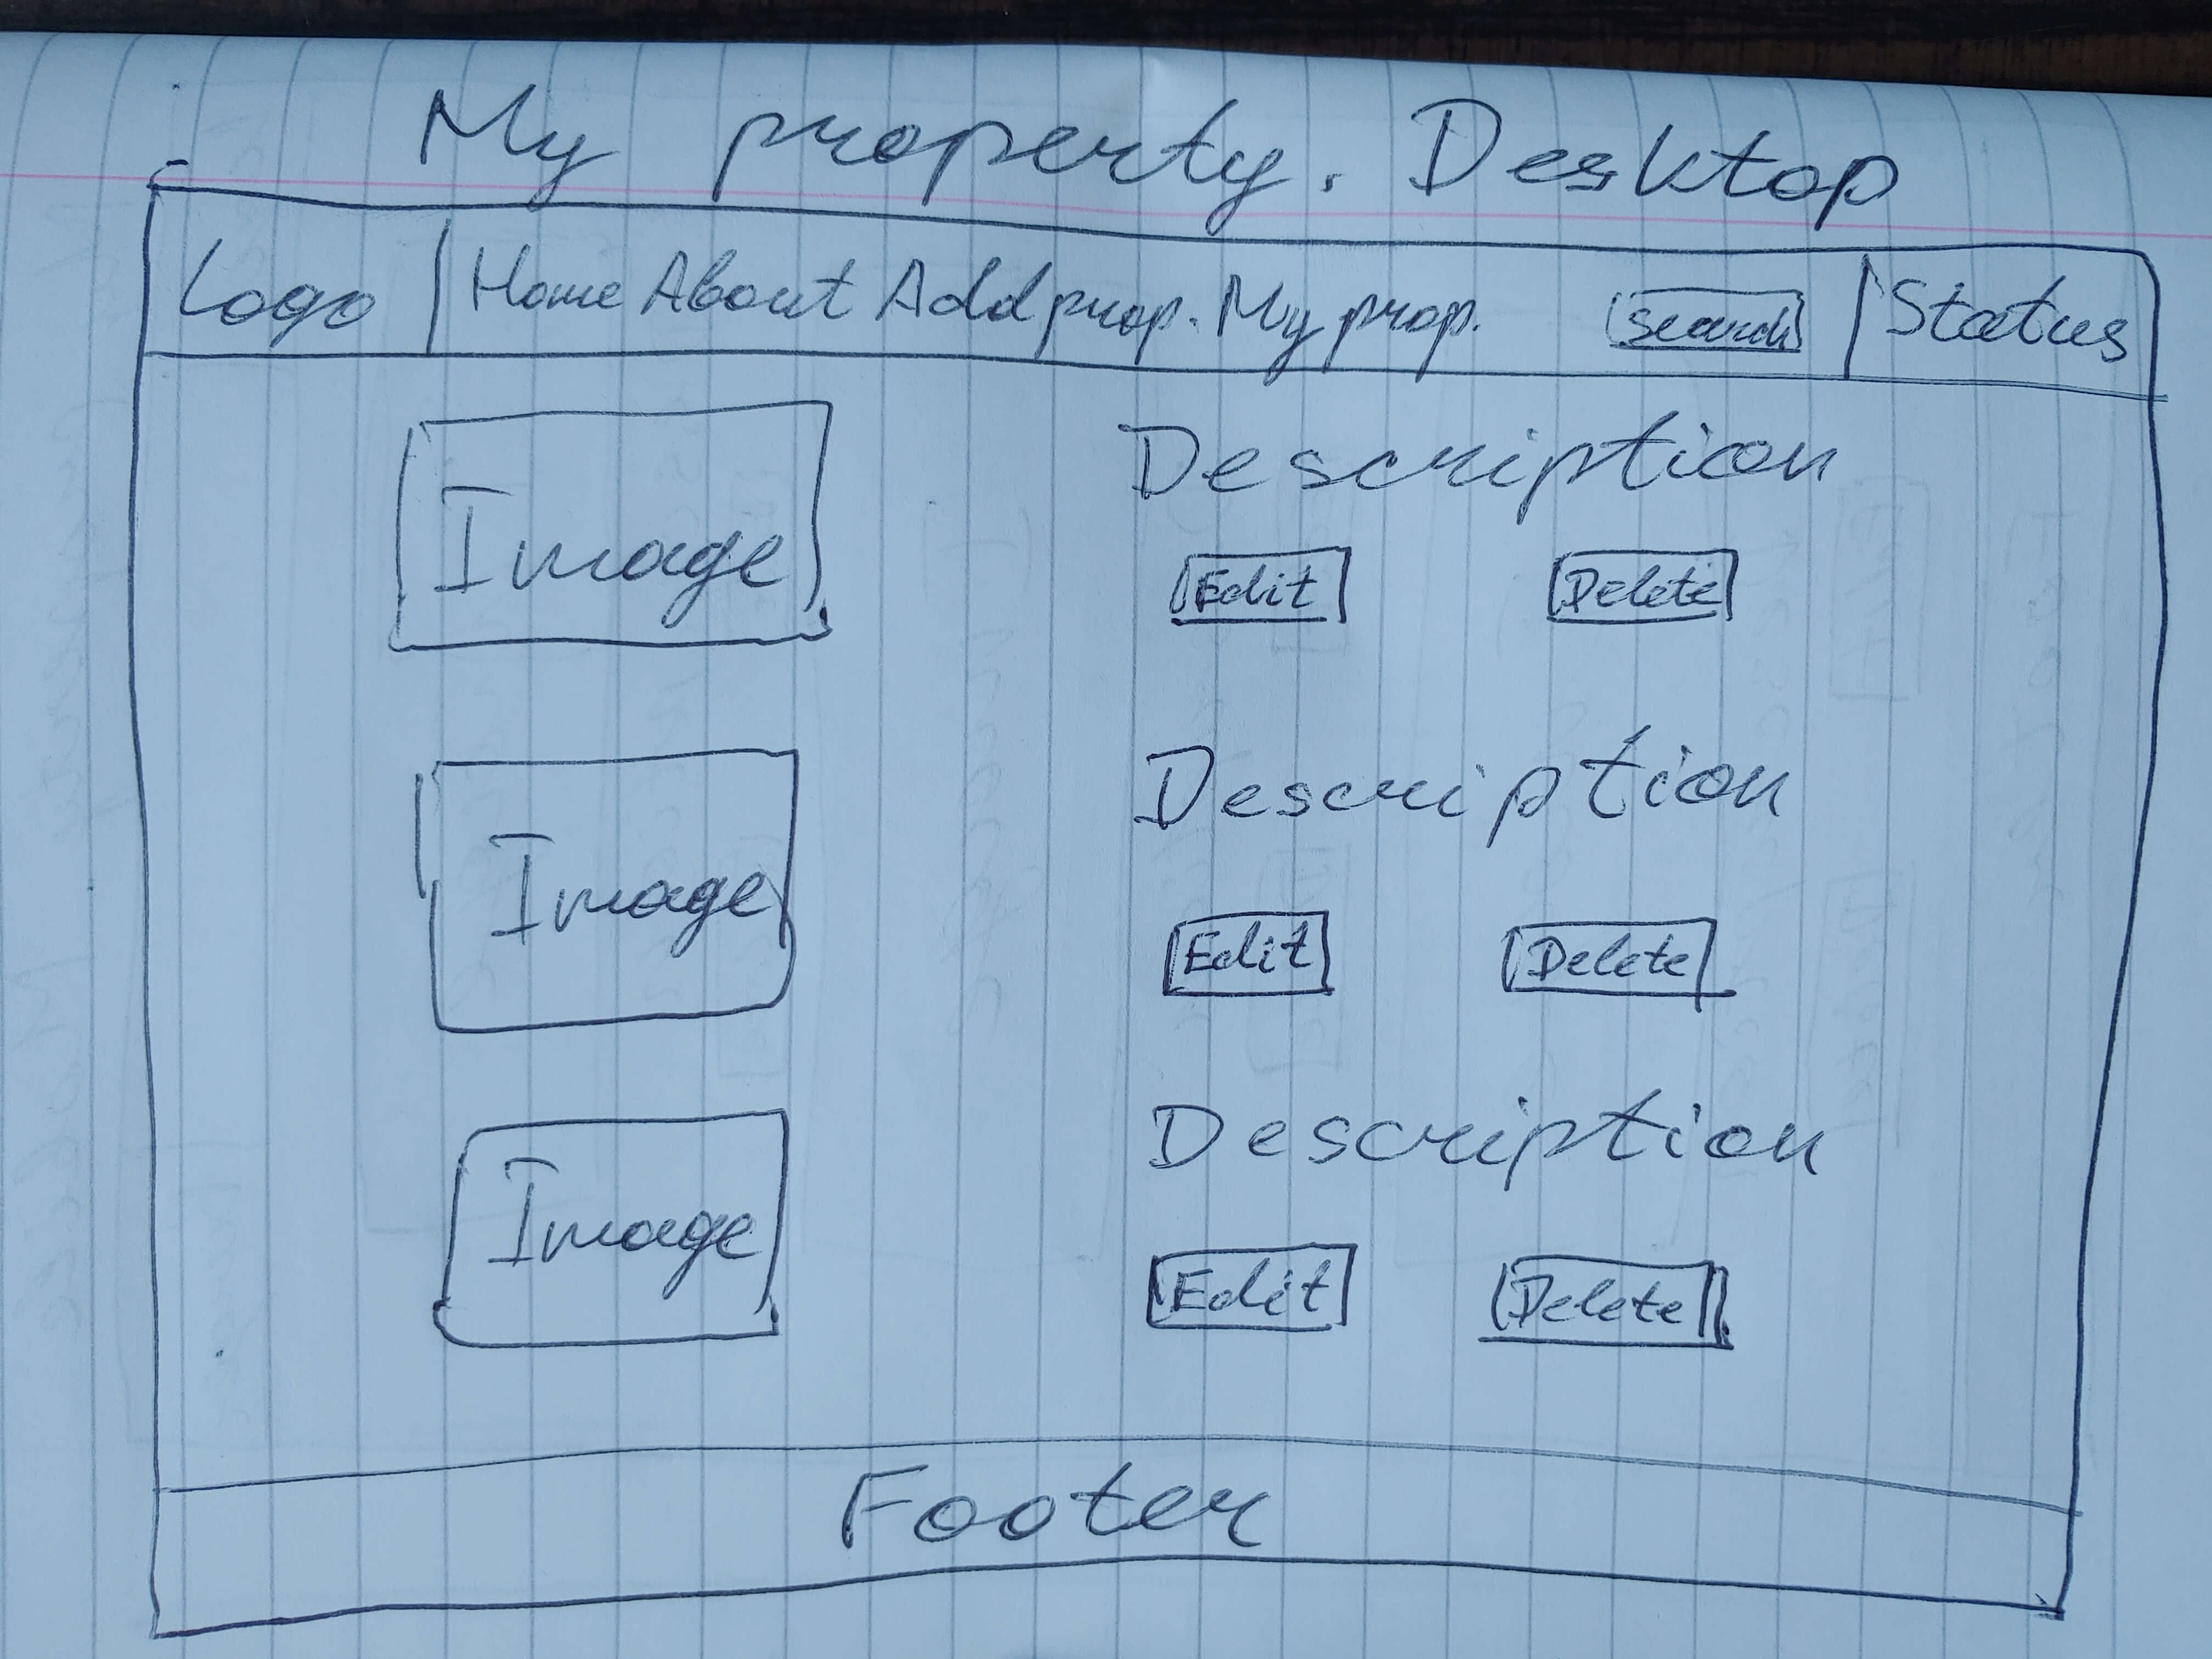 My property. Desktop
Logo Home About Add prop. My prop. search Status
Image Description
Edit Delete
Image Description
Edit Delete
Image Description
Edit Delete
Footer